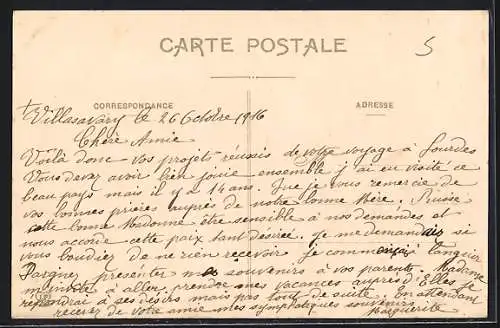 CARTE POSTALE
5
CORRESPONDANCE
ADRESSE
Villasavary le 26 Octobre 1916
Chère Amie
Voilà donc vos projets réussis de votre voyage à Lourdes
Vous devez avoir bien jouie ensemble j'ai eu visité ce
beau pays mais il y a 14 ans. Que je vous remercie de
vos bonnes prières auprès de notre bonne Mère. Puisse
cette bonne Madonne être sensible à nos demandes et
nous accorde cette paix tant désirée. Je me demandais si
vous boudiez de ne rien recevoir. Je commençais languir
présenter mes souvenirs à vos parents. Madame
à aller prendre mes vacances auprès d'Elles je
répondrai à ses désirs mais pas tout de suite. En attendant
recever de votre amie mes sympathiques souvenirs
Marguerite